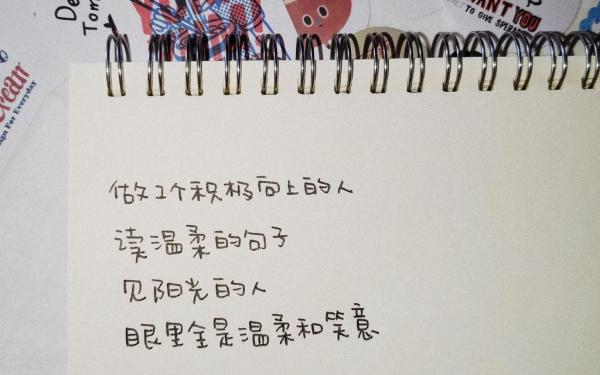 De
Tom
WANT YOU
TO GIVE SPERM
cream
gn For Everyday
做1个积极向上的人
读温柔的句子
见阳光的人
眼里全是温柔和笑意